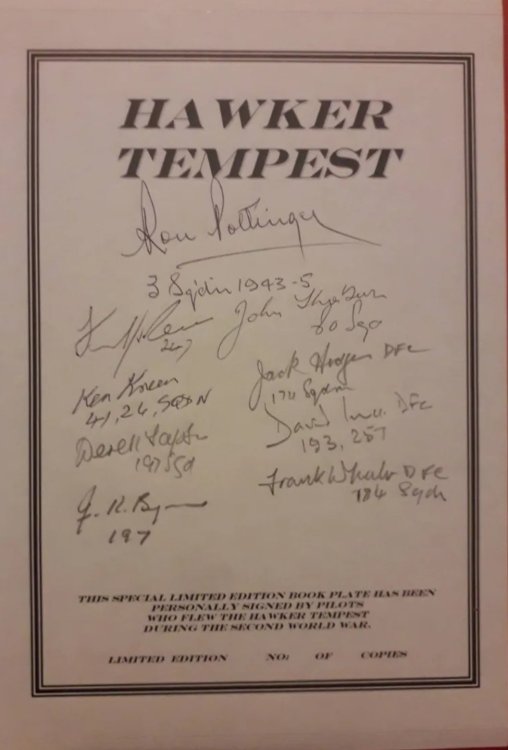 HAWKER
TEMPEST
Ron Pottinger
3 Sqdn 1943-5
247
John
80 Sqd
Ken
41, 26, SQDN
Jack DFC
174 Sqdn
Derek
197 Sqd
David DFC
193, 257
J. R.
197
Frank Wheeler DFC
184 Sqdn
THIS SPECIAL LIMITED EDITION BOOK PLATE HAS BEEN
PERSONALLY SIGNED BY PILOTS
WHO FLEW THE HAWKER TEMPEST
DURING THE SECOND WORLD WAR.
LIMITED EDITION NO: OF COPIES